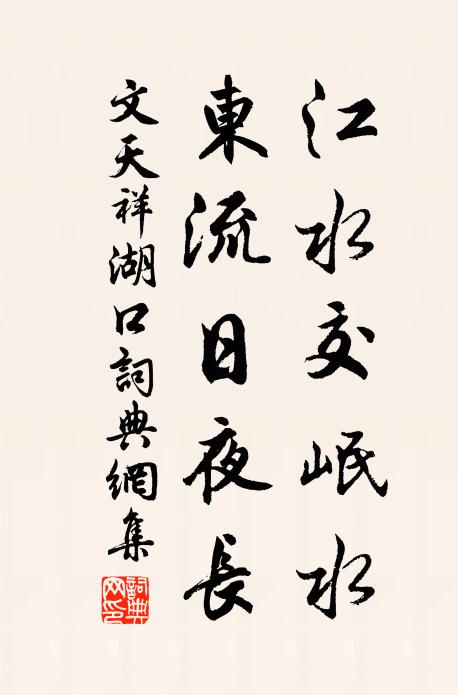 江水交岷水
東流日夜長
文天祥湖口詞典網集
詞典
网印